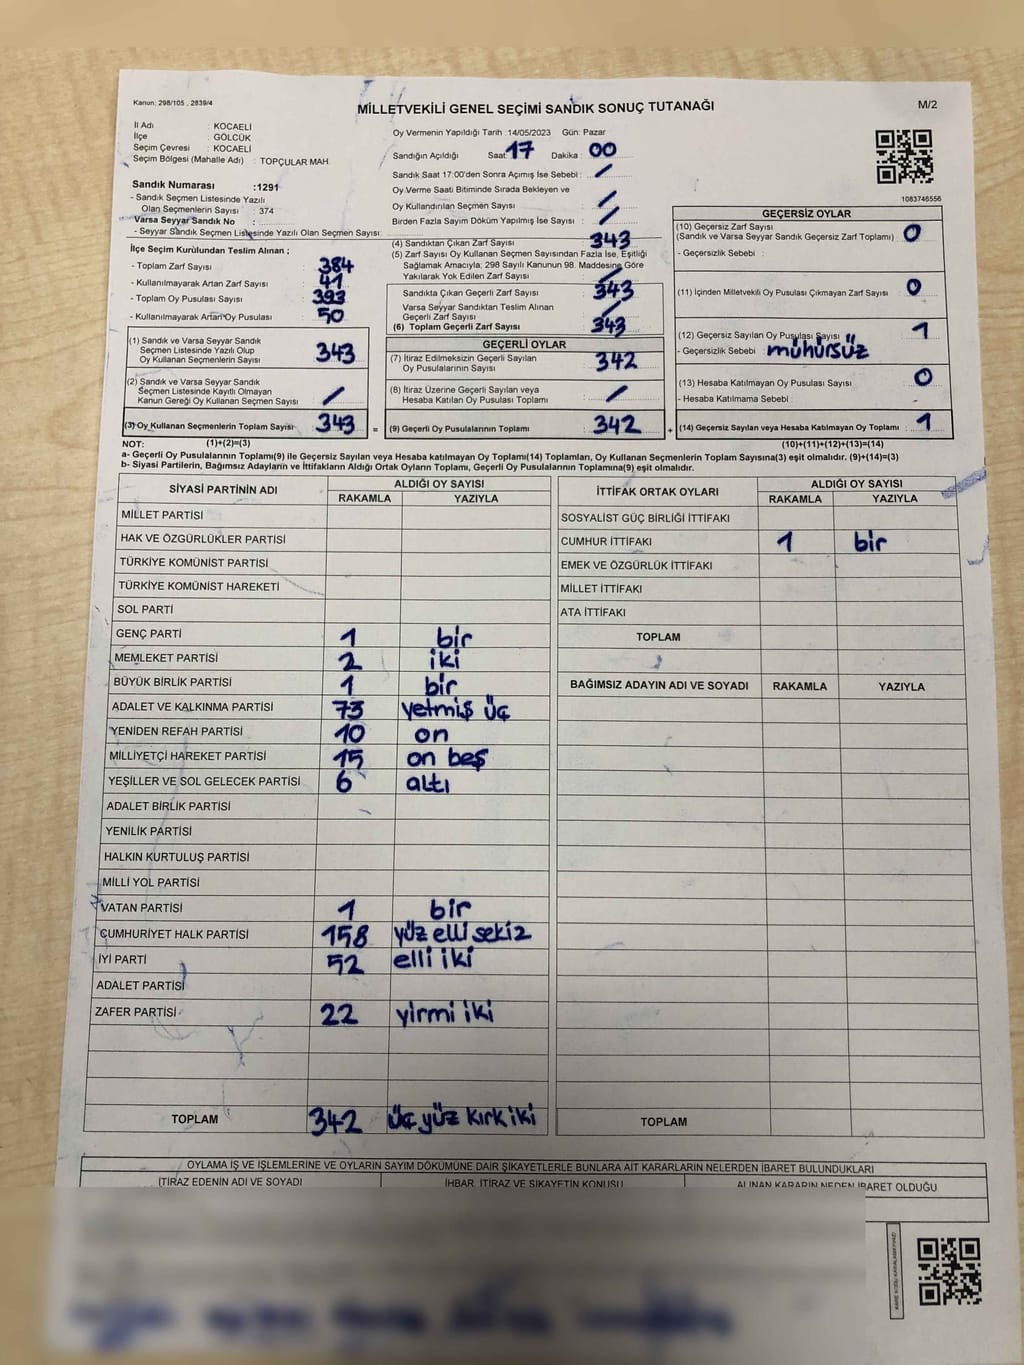 Kanun; 298/105 , 2839/4
MİLLETVEKİLİ GENEL SEÇİMİ SANDIK SONUÇ TUTANAĞI
M/2
İl Adı : KOCAELİ
İlçe : GÖLCÜK
Seçim Çevresi : KOCAELİ
Seçim Bölgesi (Mahalle Adı) : TOPÇULAR MAH.
Sandık Numarası :1291
- Sandık Seçmen Listesinde Yazılı
Olan Seçmenlerin Sayısı : 374
Varsa Seyyar Sandık No :
- Seyyar Sandık Seçmen Listesinde Yazılı Olan Seçmen Sayısı:
İlçe Seçim Kurulundan Teslim Alınan ;
- Toplam Zarf Sayısı 384
- Kullanılmayarak Artan Zarf Sayısı 41
- Toplam Oy Pusulası Sayısı 393
- Kullanılmayarak Artan Oy Pusulası 50
(1) Sandık ve Varsa Seyyar Sandık
Seçmen Listesinde Yazılı Olup
Oy Kullanan Seçmenlerin Sayısı 343
(2) Sandık ve Varsa Seyyar Sandık
Seçmen Listesinde Kayıtlı Olmayan
Kanun Gereği Oy Kullanan Seçmen Sayısı /
(3) Oy Kullanan Seçmenlerin Toplam Sayısı 343 =
Oy Vermenin Yapıldığı Tarih :14/05/2023 Gün: Pazar
Sandığın Açıldığı Saat: 17 Dakika : 00
Sandık Saat 17:00'den Sonra Açımış İse Sebebi : /
Oy Verme Saati Bitiminde Sırada Bekleyen ve
Oy Kullandırılan Seçmen Sayısı : /
Birden Fazla Sayım Döküm Yapılmış İse Sayısı : /
(4) Sandıktan Çıkan Zarf Sayısı 343
(5) Zarf Sayısı Oy Kullanan Seçmen Sayısından Fazla İse, Eşitliği
Sağlamak Amacıyla; 298 Sayılı Kanunun 98. Maddesine Göre
Yakılarak Yok Edilen Zarf Sayısı : /
Sandıkta Çıkan Geçerli Zarf Sayısı 343
Varsa Seyyar Sandıktan Teslim Alınan
Geçerli Zarf Sayısı /
(6) Toplam Geçerli Zarf Sayısı 343
GEÇERLİ OYLAR
(7) İtiraz Edilmeksizin Geçerli Sayılan
Oy Pusulalarının Sayısı 342
(8) İtiraz Üzerine Geçerli Sayılan veya
Hesaba Katılan Oy Pusulası Toplamı /
(9) Geçerli Oy Pusulalarının Toplamı 342 +
1083746556
GEÇERSİZ OYLAR
(10) Geçersiz Zarf Sayısı
(Sandık ve Varsa Seyyar Sandık Geçersiz Zarf Toplamı) 0
- Geçersizlik Sebebi :
(11) İçinden Milletvekili Oy Pusulası Çıkmayan Zarf Sayısı 0
(12) Geçersiz Sayılan Oy Pusulası Sayısı 1
- Geçersizlik Sebebi : mühürsüz
(13) Hesaba Katılmayan Oy Pusulası Sayısı 0
- Hesaba Katılmama Sebebi :
(14) Geçersiz Sayılan veya Hesaba Katılmayan Oy Toplamı : 1
NOT: (1)+(2)=(3) (10)+(11)+(12)+(13)=(14)
a- Geçerli Oy Pusulalarının Toplamı(9) ile Geçersiz Sayılan veya Hesaba katılmayan Oy Toplamı(14) Toplamları, Oy Kullanan Seçmenlerin Toplam Sayısına(3) eşit olmalıdır. (9)+(14)=(3)
b- Siyasi Partilerin, Bağımsız Adayların ve İttifakların Aldığı Ortak Oyların Toplamı, Geçerli Oy Pusulalarının Toplamına(9) eşit olmalıdır.
SİYASİ PARTİNİN ADI ALDIĞI OY SAYISI
RAKAMLA YAZIYLA
MİLLET PARTİSİ
HAK VE ÖZGÜRLÜKLER PARTİSİ
TÜRKİYE KOMÜNİST PARTİSİ
TÜRKİYE KOMÜNİST HAREKETİ
SOL PARTİ
GENÇ PARTİ 1 bir
MEMLEKET PARTİSİ 2 iki
BÜYÜK BİRLİK PARTİSİ 1 bir
ADALET VE KALKINMA PARTİSİ 73 yetmiş üç
YENİDEN REFAH PARTİSİ 10 on
MİLLİYETÇİ HAREKET PARTİSİ 15 on beş
YEŞİLLER VE SOL GELECEK PARTİSİ 6 altı
ADALET BİRLİK PARTİSİ
YENİLİK PARTİSİ
HALKIN KURTULUŞ PARTİSİ
MİLLİ YOL PARTİSİ
VATAN PARTİSİ 1 bir
CUMHURİYET HALK PARTİSİ 158 yüz elli sekiz
İYİ PARTİ 52 elli iki
ADALET PARTİSİ
ZAFER PARTİSİ 22 yirmi iki
TOPLAM 342 üç yüz kırk iki
İTTİFAK ORTAK OYLARI ALDIĞI OY SAYISI
RAKAMLA YAZIYLA
SOSYALİST GÜÇ BİRLİĞİ İTTİFAKI
CUMHUR İTTİFAKI 1 bir
EMEK VE ÖZGÜRLÜK İTTİFAKI
MİLLET İTTİFAKI
ATA İTTİFAKI
TOPLAM
BAĞIMSIZ ADAYIN ADI VE SOYADI RAKAMLA YAZIYLA
TOPLAM
OYLAMA İŞ VE İŞLEMLERİNE VE OYLARIN SAYIM DÖKÜMÜNE DAİR ŞİKAYETLERLE BUNLARA AİT KARARLARIN NELERDEN İBARET BULUNDUKLARI
İTİRAZ EDENİN ADI VE SOYADI İHBAR, İTİRAZ VE ŞİKAYETİN KONUSU ALINAN KARARIN NEDEN İBARET OLDUĞU